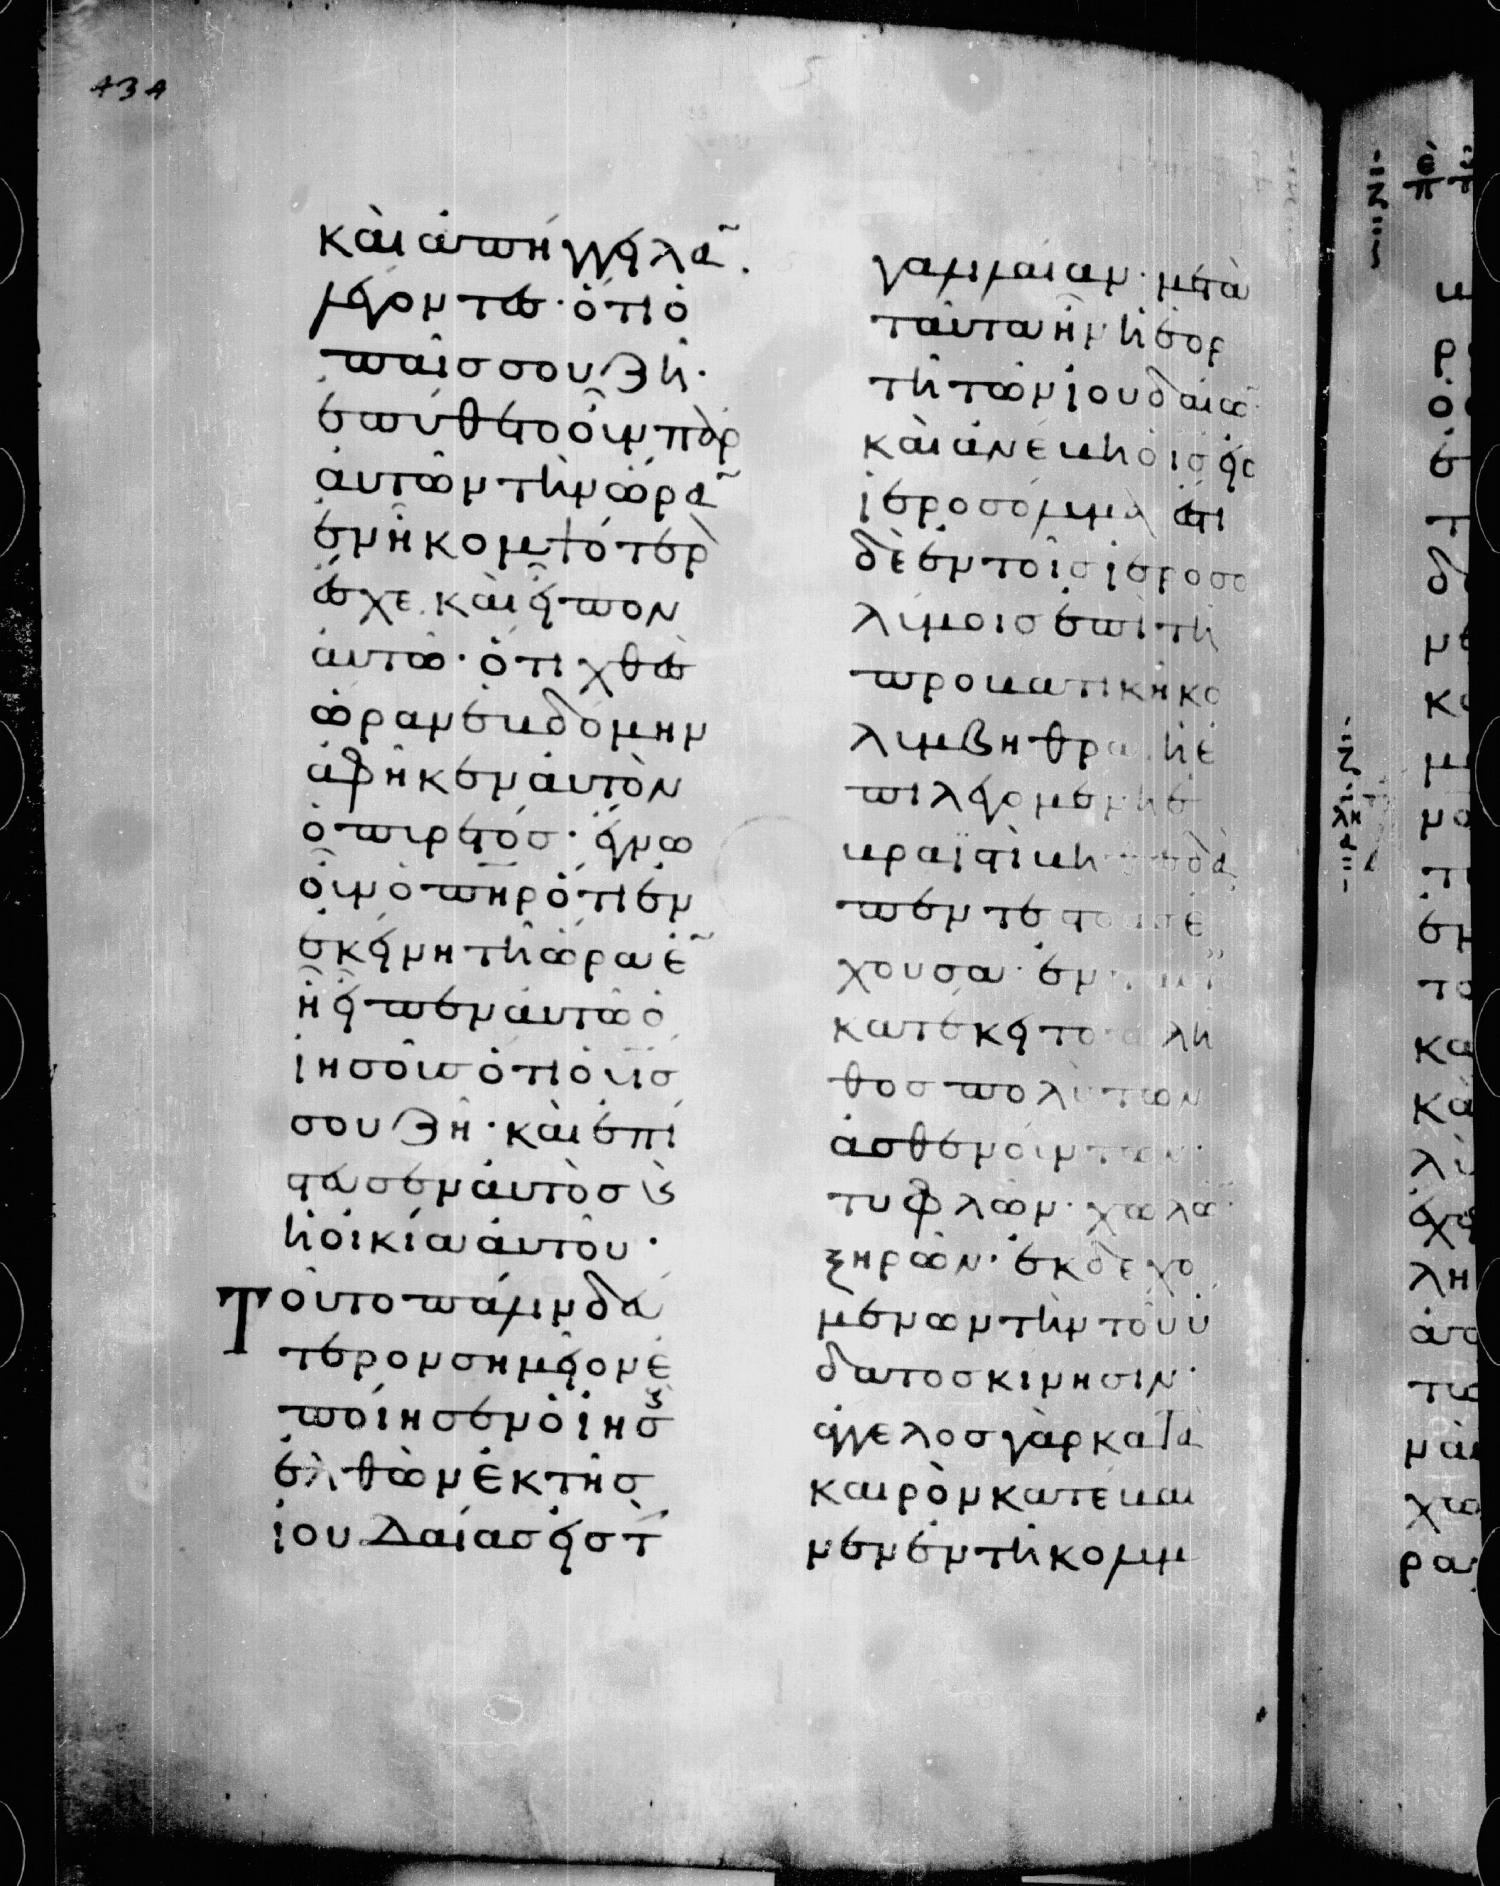 καὶ ἀπήγγειλα̅
λέγοντες· ὅτι ὁ
παῖς σου ζῆ·
ἐπύθετο οὖν παρ
αὐτῶν τὴν ὥρα̅
ἐν ἧ κομψότερ
ἔσχε. καὶ εἶπον
αὐτῶ· ὅτι χθὲς
ὥραν ἑβδόμην
ἀφῆκεν αὐτὸν
ὁ πυρετός· ἔγνω
οὖν ὁ πηρ ὅτι ἐν
ἐκείνη τῆ ὥρα ἐ̅
ἧ εἶπεν αὐτῶ ὁ
ιησοῦς ὅτι ὁ υις
σου ζῆ· καὶ ἐπί
στευσεν αὐτὸς κ
ἡ οἰκία αὐτοῦ·
Τοῦτο πάλιν δεύ
τερον σημεῖον ἐ
ποίησεν ὁ ιης
ἐλθὼν ἐκ τῆς
ιουδαίας εἰς τ
γαλιλαίαν· μετὰ
ταῦτα ἦν ἡ ἑορ
τὴ τῶν ιουδαίω̅·
καὶ ἀνέβη ὁ ις εἰς
ιεροσόλυμα ἔστι
δὲ ἐν τοῖς ιεροσο
λύμοις ἐπὶ τῆ
προβατικῆ κο
λυμβήθρα ἡ ἐ
πιλεγομένη ἑ
βραϊστὶ βη
πέντε στοὰς ἔ
χουσα· ἐν
κατέκειτο πλῆ
θος πολὺ τῶν
ἀσθενούντων·
τυφλῶν· χωλῶ̅·
ξηρῶν· ἐκδεχο
μένων τὴν τοῦ ὕ
δατος κίνησιν·
ἄγγελος γὰρ κατὰ
καιρὸν κατέβαι
νεν ἐν τῆ κολυμ